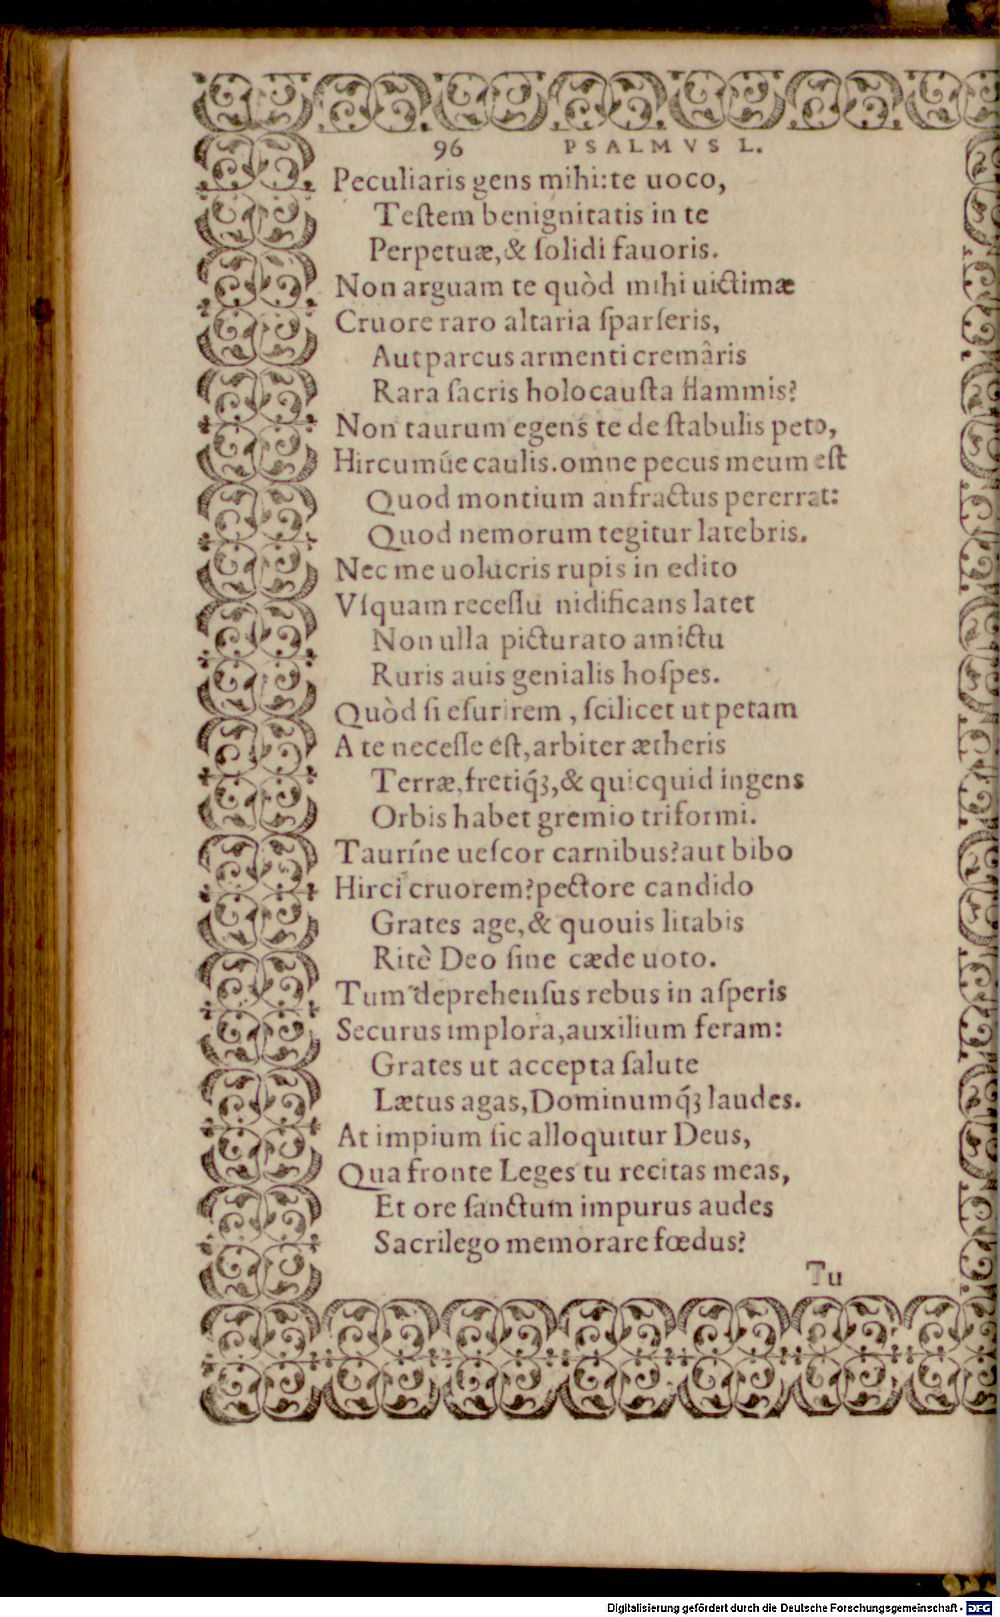 96 PSALMVS L.
Peculiaris gens mihi:te uoco,
Teſtem benignitatis in te
Perpetuæ,& ſolidi fauoris.
Non arguam te quòd mihi uictimæ
Cruore raro altaria ſparſeris,
Aut parcus armenti cremâris
Rara ſacris holocauſta flammis?
Non taurum egens te de ſtabulis peto,
Hircumúe caulis.omne pecus meum eſt
Quod montium anfractus pererrat:
Quod nemorum tegitur latebris.
Nec me uolucris rupis in edito
Vſquam receſſu nidificans latet
Non ulla picturato amictu
Ruris auis genialis hoſpes.
Quòd ſi eſurirem , ſcilicet ut petam
A te neceſſe eſt,arbiter ætheris
Terræ,fretiq́ꝫ,& quicquid ingens
Orbis habet gremio triformi.
Tauríne ueſcor carnibus?aut bibo
Hirci cruorem?pectore candido
Grates age,& quouis litabis
Ritè Deo ſine cæde uoto.
Tum deprehenſus rebus in aſperis
Securus implora,auxilium feram:
Grates ut accepta ſalute
Lætus agas,Dominumq́ꝫ laudes.
At impium ſic alloquitur Deus,
Qua fronte Leges tu recitas meas,
Et ore ſanctum impurus audes
Sacrilego memorare fœdus?
Tu
Digitalisierung gefördert durch die Deutsche Forschungsgemeinschaft - DFG